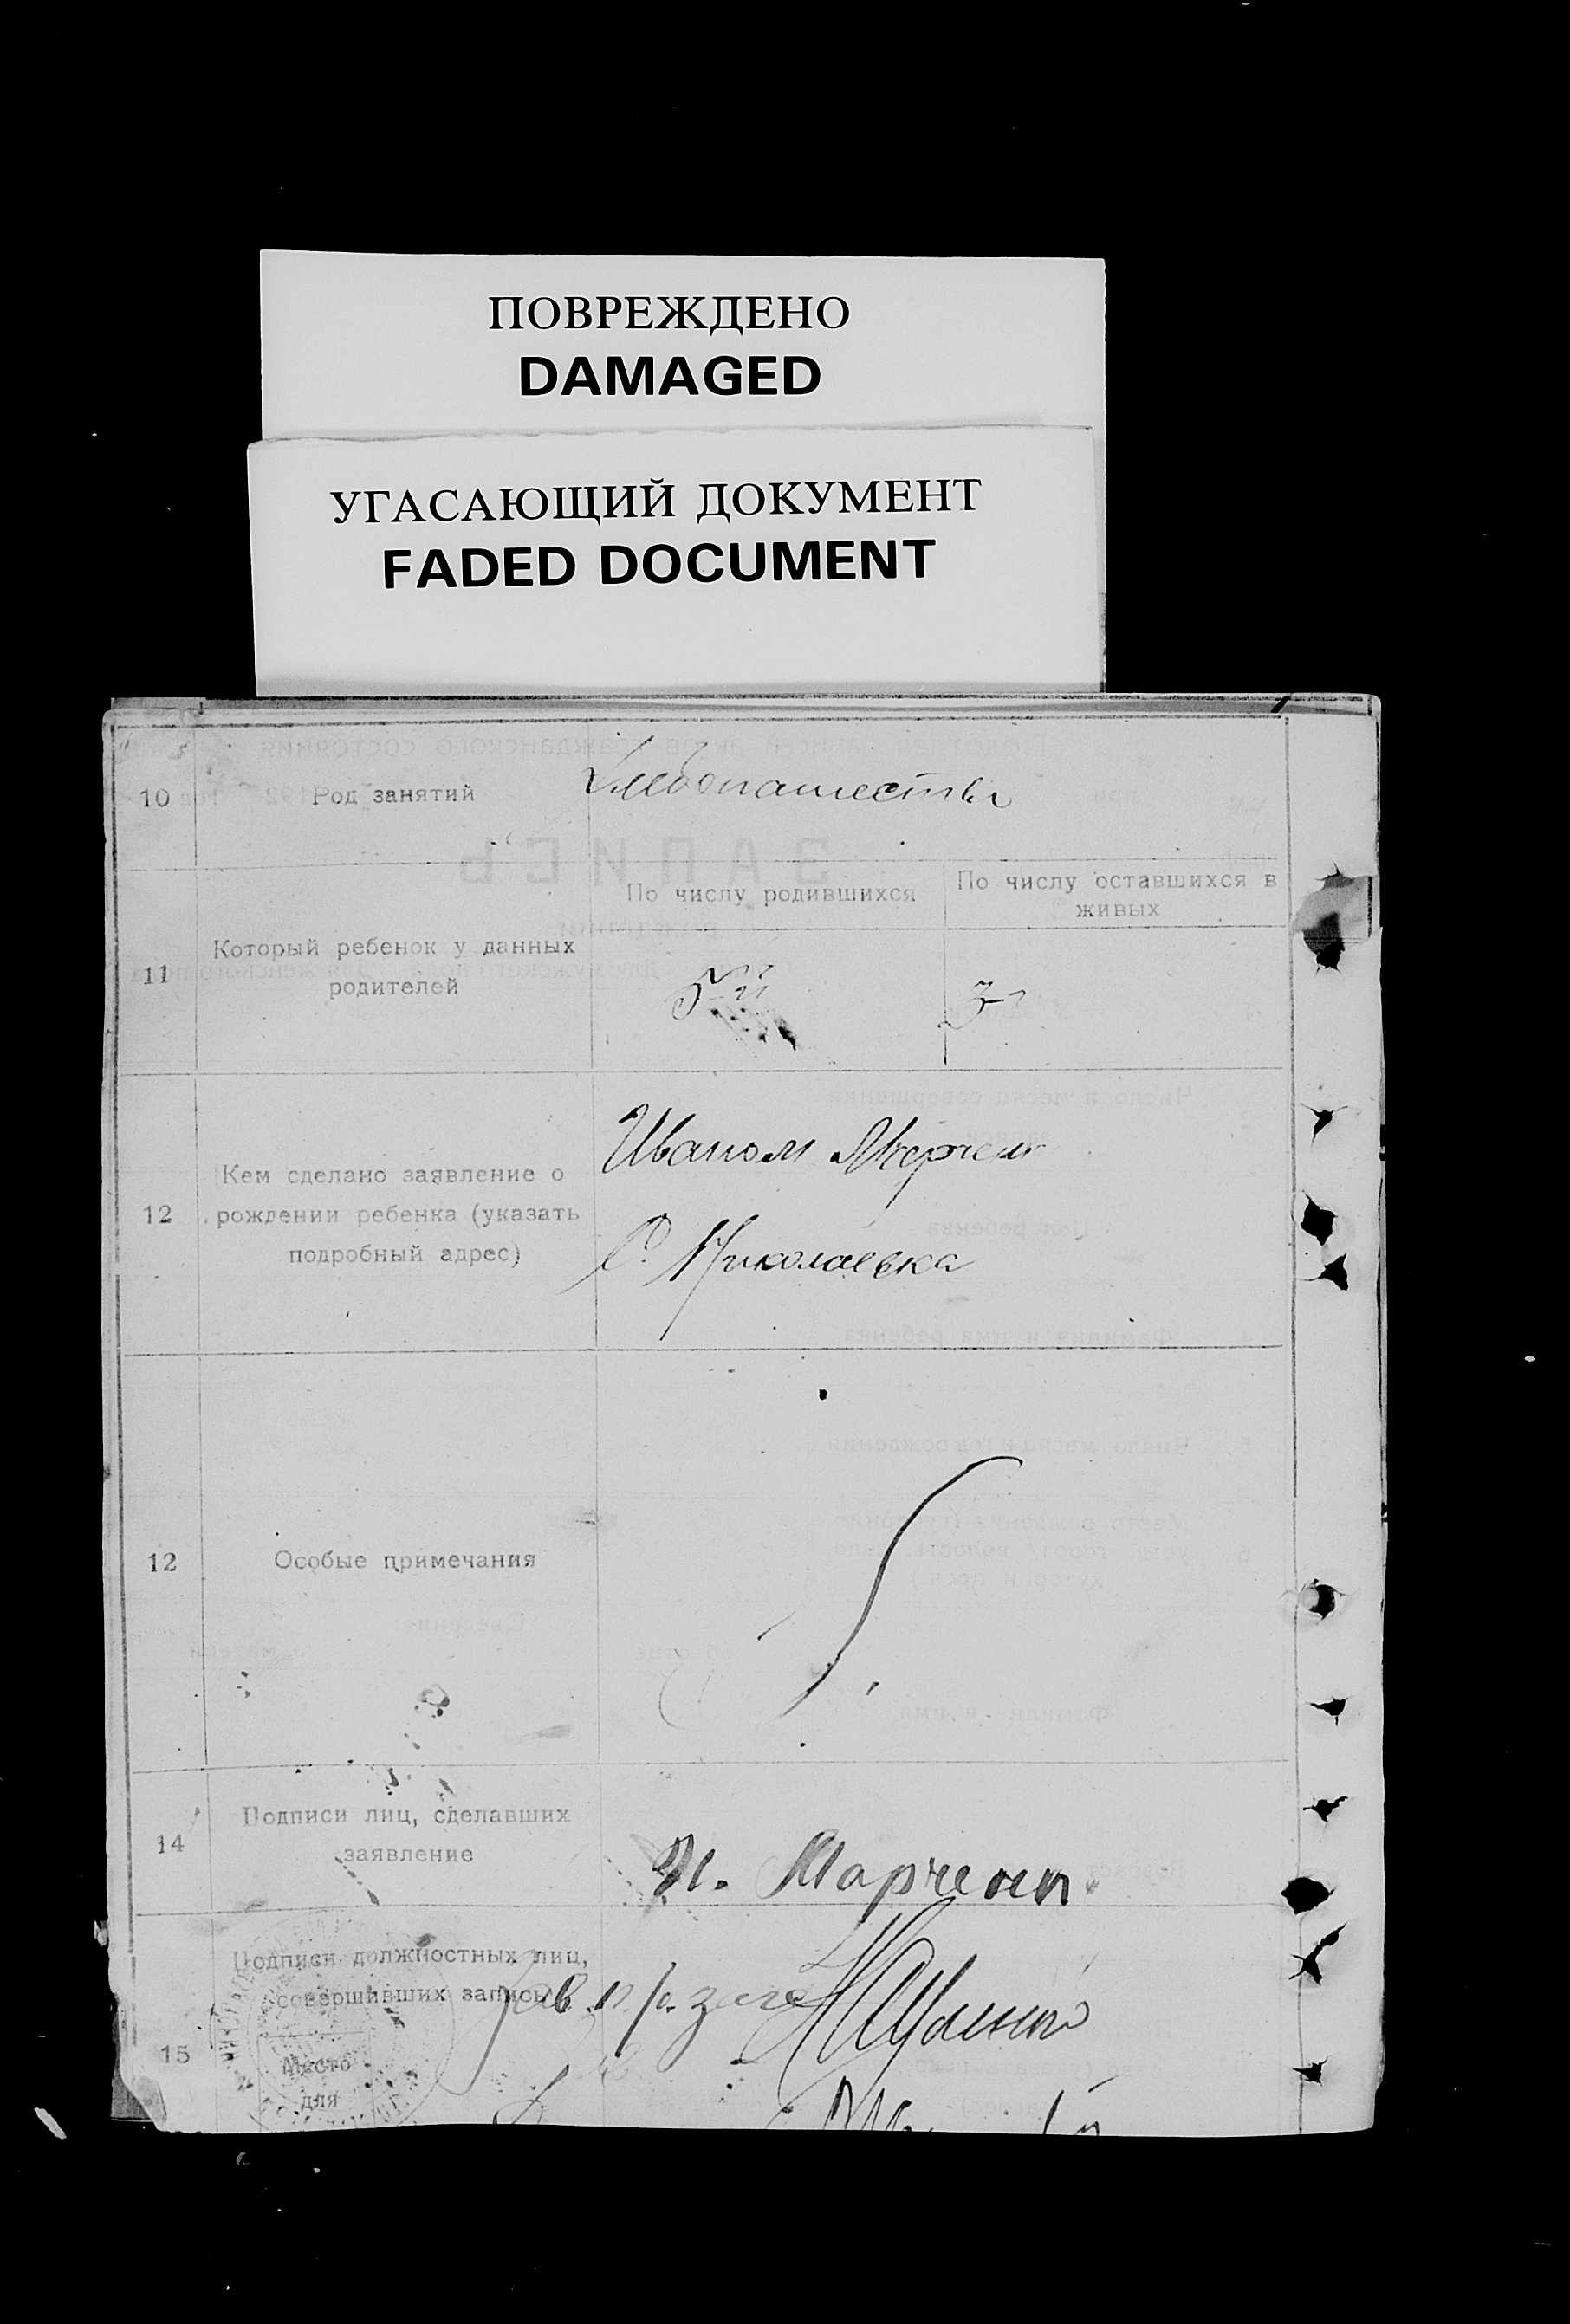 ПОВРЕЖДЕНО
DAMAGED
УГАСАЮЩИЙ ДОКУМЕНТ
FADED DOCUMENT
10 Род занятий Хлебопашество
По числу родившихся По числу оставшихся в
живых
11 Который ребенок у данных
родителей
5й 3
12 Кем сделано заявление о
рождении ребенка (указать
подробный адрес)
Иваном
С. Николаевка
12 Особые примечания
14 Подписи лиц, сделавших
заявление
И. Марченко
15 Подписи должностных лиц,
совершивших запись
Зав. п/о. загс
Место
для